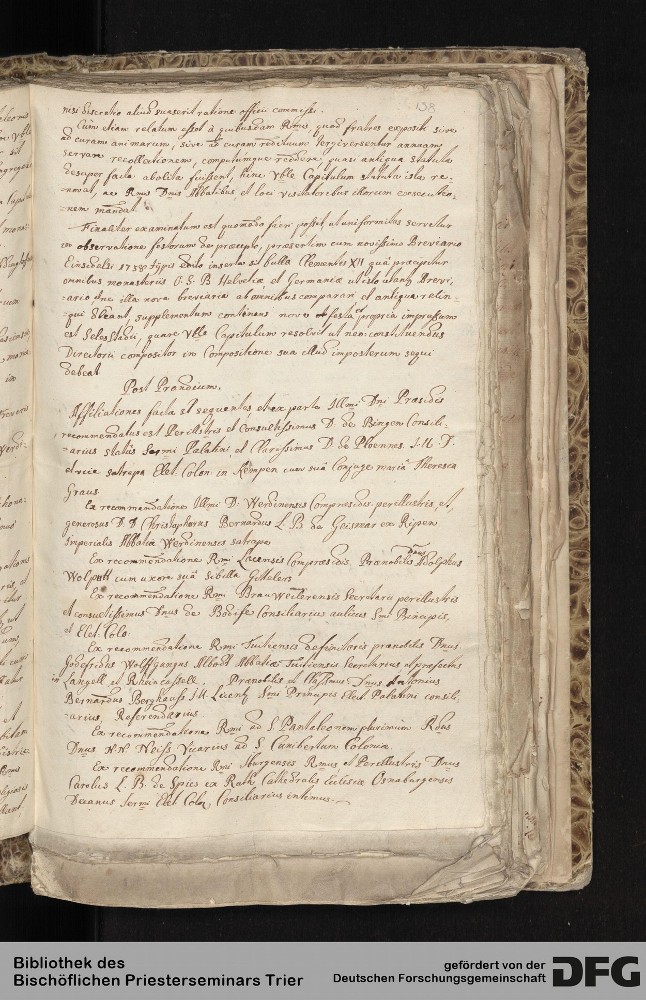 138
nisi discretio aliud suaserit ratione officii commissi.
Cùm etiam relatum esset à quibusdam Rmis, quod fratres expositi sive
ad curam animarum, sive ad curam redituum tergiversentur annuam
servare recollectionem, computumque reddere, quasi antiqua statuta
desuper facta abolita fuissent, hinc Vble Capitulum statuta ista re-
novat, ac Rmis Dnis Abbatibus et loci visitatoribus illorum executio-
nem mandat.
Finaliter examinatum est quomodo fieri possit, ut uniformitas servetur
in observatione festorum de praecepto, praesertim cum novissimo Breviario
Einsidelsi 1738 typis dato inserta sit bulla Clementis XII quâ praecipitur
omnibus monasteriis O. S. B. Helvetiae et Germaniae ut isto utantur Brevi,
ario, sed illa nova breviaria ab omnibus comparari et antiqua relin-
qui, supplementum continens nova festa et propria impressum
est Selestadii, quare Vble Capitulum resolvit ut neo constituendus
Directorii compositor in compositione sua illud imposterum sequi
debeat
Post Prandium.
Affiliationes facta st sequentes et ex parte Illmi Dni Praesidis
recommendatus est Perillstris et Consultissimus D. de Bingen Consili-
arius status Sermi Palatini, et Clarissimus D. de Ploennes. J. U. D.
satrapa Elet. Colon. in Kempen cum suâ Conjuge mariâ Theresia
Graus.
Ex recommendatione Illmi D. Werdinensis Compraesidis perillustris et,
generosus D. D. Christophorus Bernardus L. B. de Geismar ex Ripen
Imperialis Abbatiae Werdinensis satrapa
Ex recommendatione Rmi Lacensis Compraesidis, Praenobilis Dnus Adolphus
Wolputt cum uxore suâ Sibilla Gillelers
Ex recommendatione Rmi Brauweilerensis Secretarii perillustris
et consultissimus Dnus de Bodife Consiliarius aulicus Smi Principis,
et Elet. Colo.
Ex recommendatione Rmi Tuitiensis definitoris praenobilis Dnus
Godefridus Wolffgangus Abbodt Abbatiae Tuitiensis Secretarius et praefectus
in Langell et Rheincassell. Praenobilis et Clissimus Dnus Antonius
Bernardus Borghauss J. U. Licent. Smi Principis Elect. Palatini consili-
arius, Referendarius
Ex recommendatione Rmi ad S. Pantaleonem plurimùm Rdus
Dnus N. N. Neiss Vicarius ad S. Cunibertum Coloniae
Ex recommendatione Rmi Iburgensis Rmus et Perillustris Dnus
Carolus L. B. de Spies ex Rath Cathedralis Ecclesiae Osnaburgensis
Decanus Sermi Elet Colon, Consiliarius intimus.
Bibliothek des
Bischöflichen Priesterseminars Trier
gefördert von der
Deutschen Forschungsgemeinschaft
DFG